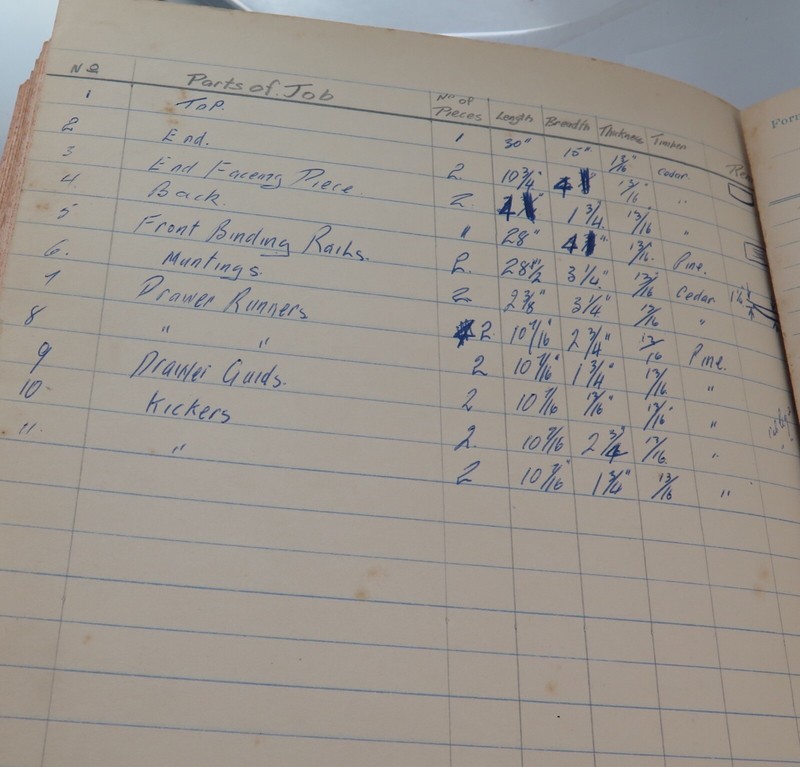 Nº Parts of Job Nº of Pieces Length Breadth Thickness Timber
1 Top. 1 30" 15" 13/16 Cedar.
2 End. 2. 10 3/4" 4 13/16" "
3 End Faceing Piece 2. 4 1 3/4 13/16 "
4. Back. " 28" 4 13/16 Pine.
5 Front Binding Rails. 2. 28 1/2 3 1/4" 13/16 Cedar
6. Muntings. 2 2 3/8" 3 1/4 13/16 "
7 Drawer Runners 2 10 7/16" 2 3/4" 13/16 Pine.
8 " " 2 10 7/16" 1 3/4" 13/16 "
9 Drawer Guids. 2 10 7/16 13/16" 13/16" "
10 Kickers 2. 10 7/16 2 3/4" 13/16 "
11. " 2 10 7/16" 1 3/4" 13/16 "
Form